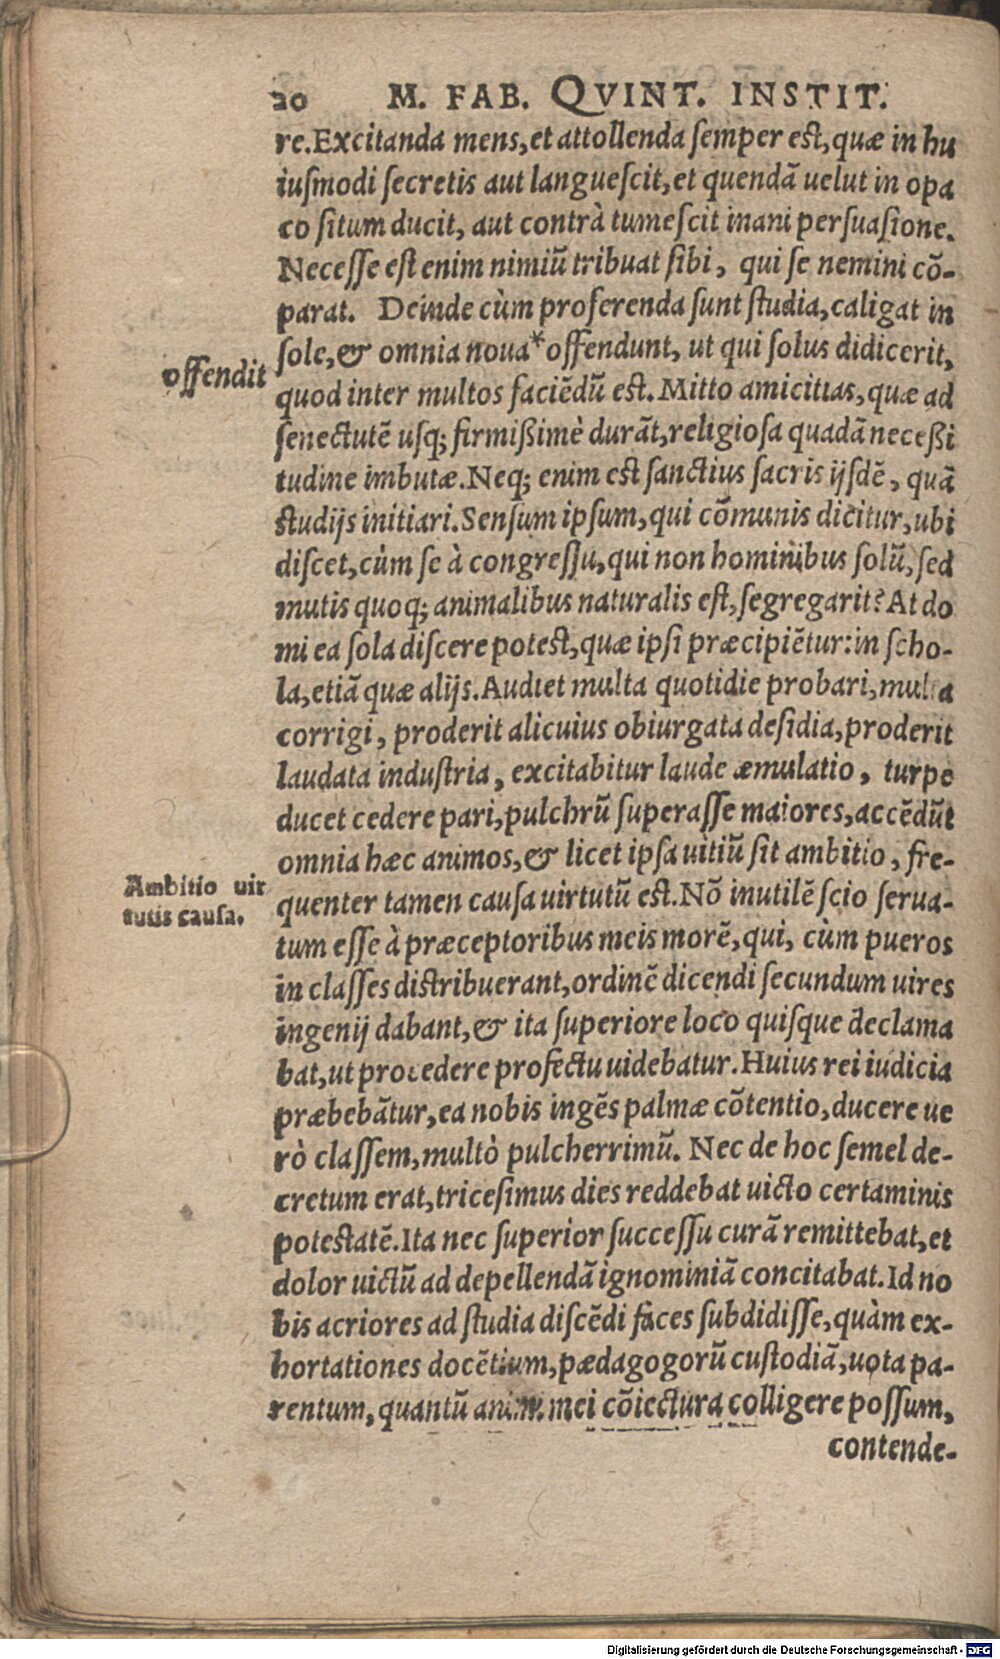 20 M. FAB. QVINT. INSTIT.
re. Excitanda mens, et attollenda semper est, quæ in hu
iusmodi secretis aut languescit, et quendã uelut in opa
co situm ducit, aut contrà tumescit inani persuasione.
Necesse est enim nimiũ tribuat sibi, qui se nemini cõ-
parat. Deinde cùm proferenda sunt studia, caligat in
sole, & omnia noua* offendunt, ut qui solus didicerit,
offendit
quod inter multos faciẽdũ est. Mitto amicitias, quæ ad
senectutẽ usq; firmißimè durãt, religiosa quadã neceßi
tudine imbutæ. Neq; enim est sanctius sacris ijsdẽ, quã
studijs initiari. Sensum ipsum, qui cõmunis dicitur, ubi
discet, cùm se à congressu, qui non hominibus solũ, sed
mutis quoq; animalibus naturalis est, segregarit? At do
mi ea sola discere potest, quæ ipsi præcipiẽtur: in scho-
la, etiã quæ alijs. Audiet multa quotidie probari, multa
corrigi, proderit alicuius obiurgata desidia, proderit
laudata industria, excitabitur laude æmulatio, turpe
ducet cedere pari, pulchrũ superasse maiores, accẽdũt
omnia hæc animos, & licet ipsa uitiũ sit ambitio, fre-
Ambitio uir
tutis causa.
quenter tamen causa uirtutũ est. Nõ inutilẽ scio serua-
tum esse à præceptoribus meis morẽ, qui, cùm pueros
in classes distribuerant, ordinẽ dicendi secundum uires
ingenij dabant, & ita superiore loco quisque declama
bat, ut procedere profectu uidebatur. Huius rei iudicia
præbebãtur, ea nobis ingẽs palmæ cõtentio, ducere ue
rò classem, multò pulcherrimũ. Nec de hoc semel de-
cretum erat, tricesimus dies reddebat uicto certaminis
potestatẽ. Ita nec superior successu curã remittebat, et
dolor uictũ ad depellendã ignominiã concitabat. Id no
bis acriores ad studia discẽdi faces subdidisse, quàm ex-
hortationes docẽtium, pædagogorũ custodiã, uota pa-
rentum, quantũ animi mei cõiectura colligere possum,
contende-
Digitalisierung gefördert durch die Deutsche Forschungsgemeinschaft - DFG